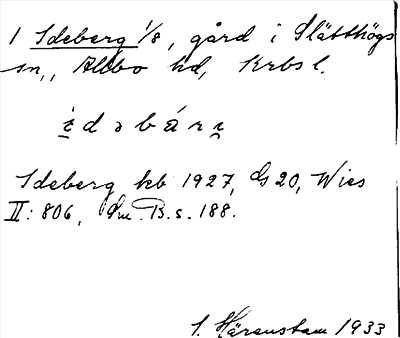 1 Ideberg 1/8, gård i Slätthögs
sn,, Allbo hd, Krbs l.
i d ə b á r ɩ
Ideberg kb 1927, GS 20, Wies
II: 806, Sm. B. s. 188.
I. Härenstam 1933